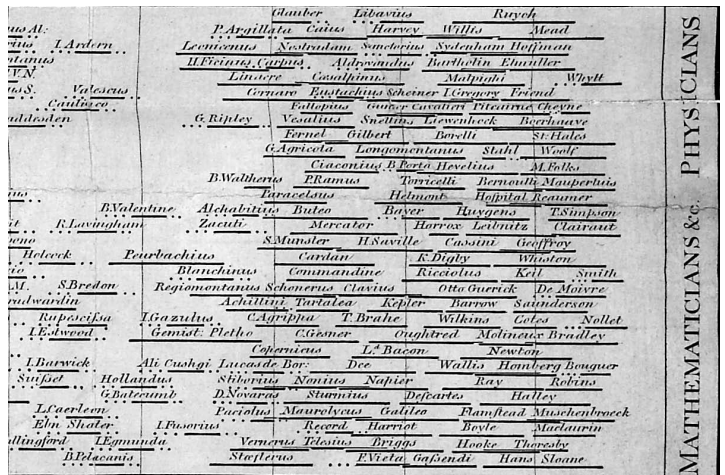 Glauber Libavius Ruych
us Al: P. Argillata Caius Harvey Willis Mead
rius I. Ardern Leonicenus Nostradam Sanctorius Sydenham Hoffman
ntanus M. Ficinus Carpus Aldrovandus Bartholin Etmuller
V.N. Linacre Cæsalpinus Malpighi Whytt
us S. Valescus Cornaro Eustachius Scheiner I. Gregory Friend
Cauliaco Fallopius Gunter Cavalieri Pitcairne Cheyne
addesden G. Ripley Vesalius Snellius Liewenhock Boerhaave
Fernel Gilbert Borelli St: Hales
G. Agricola Longomontanus Stahl Woolf
Ciaconius B. Porta Hevelius M. Folks
B. Waltherus P. Ramus Torricelli Bernoulli Maupertuis
ius Paracelsus Helmont Hospital Reaumer
B. Valentine Alchabitius Buteo Bayer Huygens T. Simpson
it R. Lavingham Zacuti Mercator Horrox Leibnitz Clairaut
ono S. Munster H. Saville Cassini Geoffroy
Holcock Peurbachius Cardan K. Digby Whiston
io Blanchinus Commandine Ricciolus Keil Smith
M. S. Bredon Regiomontanus Schonerus Clavius Otto Guerick De Moivre
radwardin Achillini Tartalea Kepler Barrow Saunderson
Rupescissa I. Gazulus C. Agrippa T. Brahe Wilkins Cotes Nollet
I. Estwood Gemist: Pletho C. Gesner Oughtred Molineux Bradley
Copernicus Ld. Bacon Newton
I. Barwick Ali Cushgi Lucas de Bor: Dee Wallis Homberg Bouguer
Suisset Hollandus Stiborius Nonius Napier Ray Robins
G. Batecumb D. Novaras Sturmius Descartes Halley
L. Caerleon Paciolus Maurolycus Galileo Flamstead Muschenbroeck
Ebn Shater I. Fusorius Record Harriot Boyle Maclaurin
allingford I. Egmunda Vernerus Telesius Briggs Hooke Thoresby
B. Pelacanis Stoeflerus F. Vieta Gassendi Hans Sloane
MATHEMATICIANS &c. PHYSICIANS